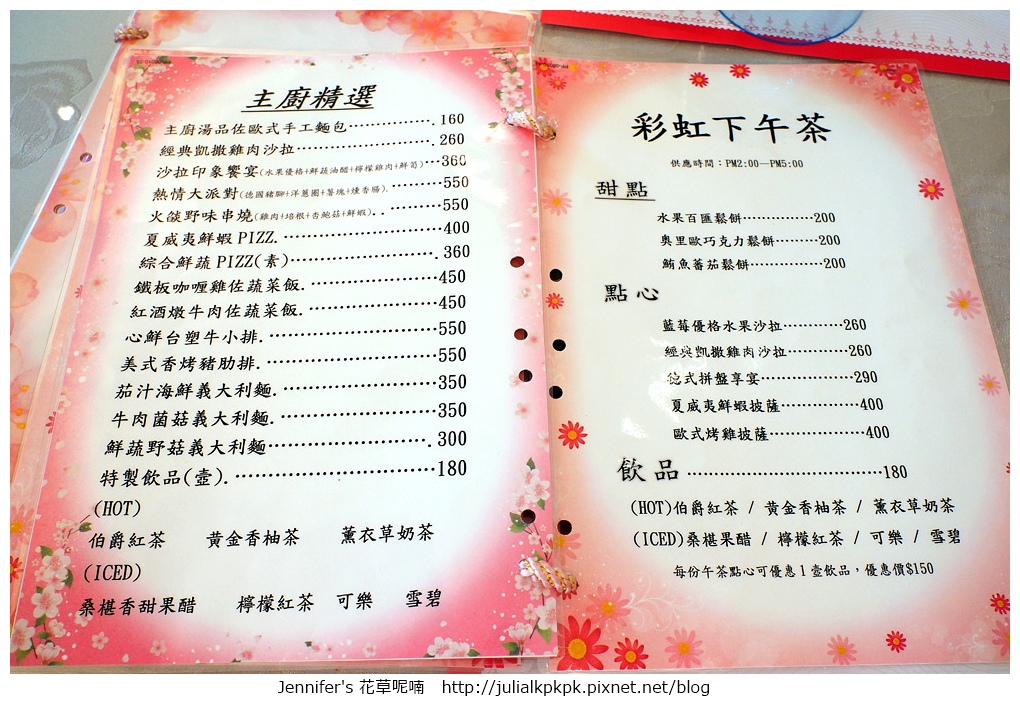 主廚精選
主廚湯品佐歐式手工麵包…………….160
經典凱撒雞肉沙拉…………………….260
沙拉印象饗宴(水果優格+鮮蔬油醋+檸檬雞肉+鮮筍)…360
熱情大派對(德國豬腳+洋蔥圈+薯塊+燻香腸).…………550
火燄野味串燒(雞肉+培根+杏鮑菇+鮮蝦)..…………550
夏威夷鮮蝦PIZZ.…………………………400
綜合鮮蔬PIZZ(素)……………………….360
鐵板咖喱雞佐蔬菜飯.……………………450
紅酒燉牛肉佐蔬菜飯.……………………450
心鮮台塑牛小排.…………………………550
美式香烤豬肋排.…………………………550
茄汁海鮮義大利麵.………………………350
牛肉菌菇義大利麵.………………………350
鮮蔬野菇義大利麵……………………….300
特製飲品(壺).……………………………180
(HOT)
伯爵紅茶 黃金香柚茶 薰衣草奶茶
(ICED)
桑椹香甜果醋 檸檬紅茶 可樂 雪碧
彩虹下午茶
供應時間：PM2:00—PM5:00
甜點
水果百匯鬆餅……………200
奧里歐巧克力鬆餅………200
鮪魚蕃茄鬆餅………………200
點心
藍莓優格水果沙拉…………260
經典凱撒雞肉沙拉…………260
德式拼盤享宴………………290
夏威夷鮮蝦披薩……………400
歐式烤雞披薩………………400
飲品……………………………180
(HOT)伯爵紅茶 / 黃金香柚茶 / 薰衣草奶茶
(ICED)桑椹果醋 / 檸檬紅茶 / 可樂 / 雪碧
每份午茶點心可優惠1壺飲品，優惠價$150
Jennifer's 花草呢喃 http://julialkpkpk.pixnet.net/blog